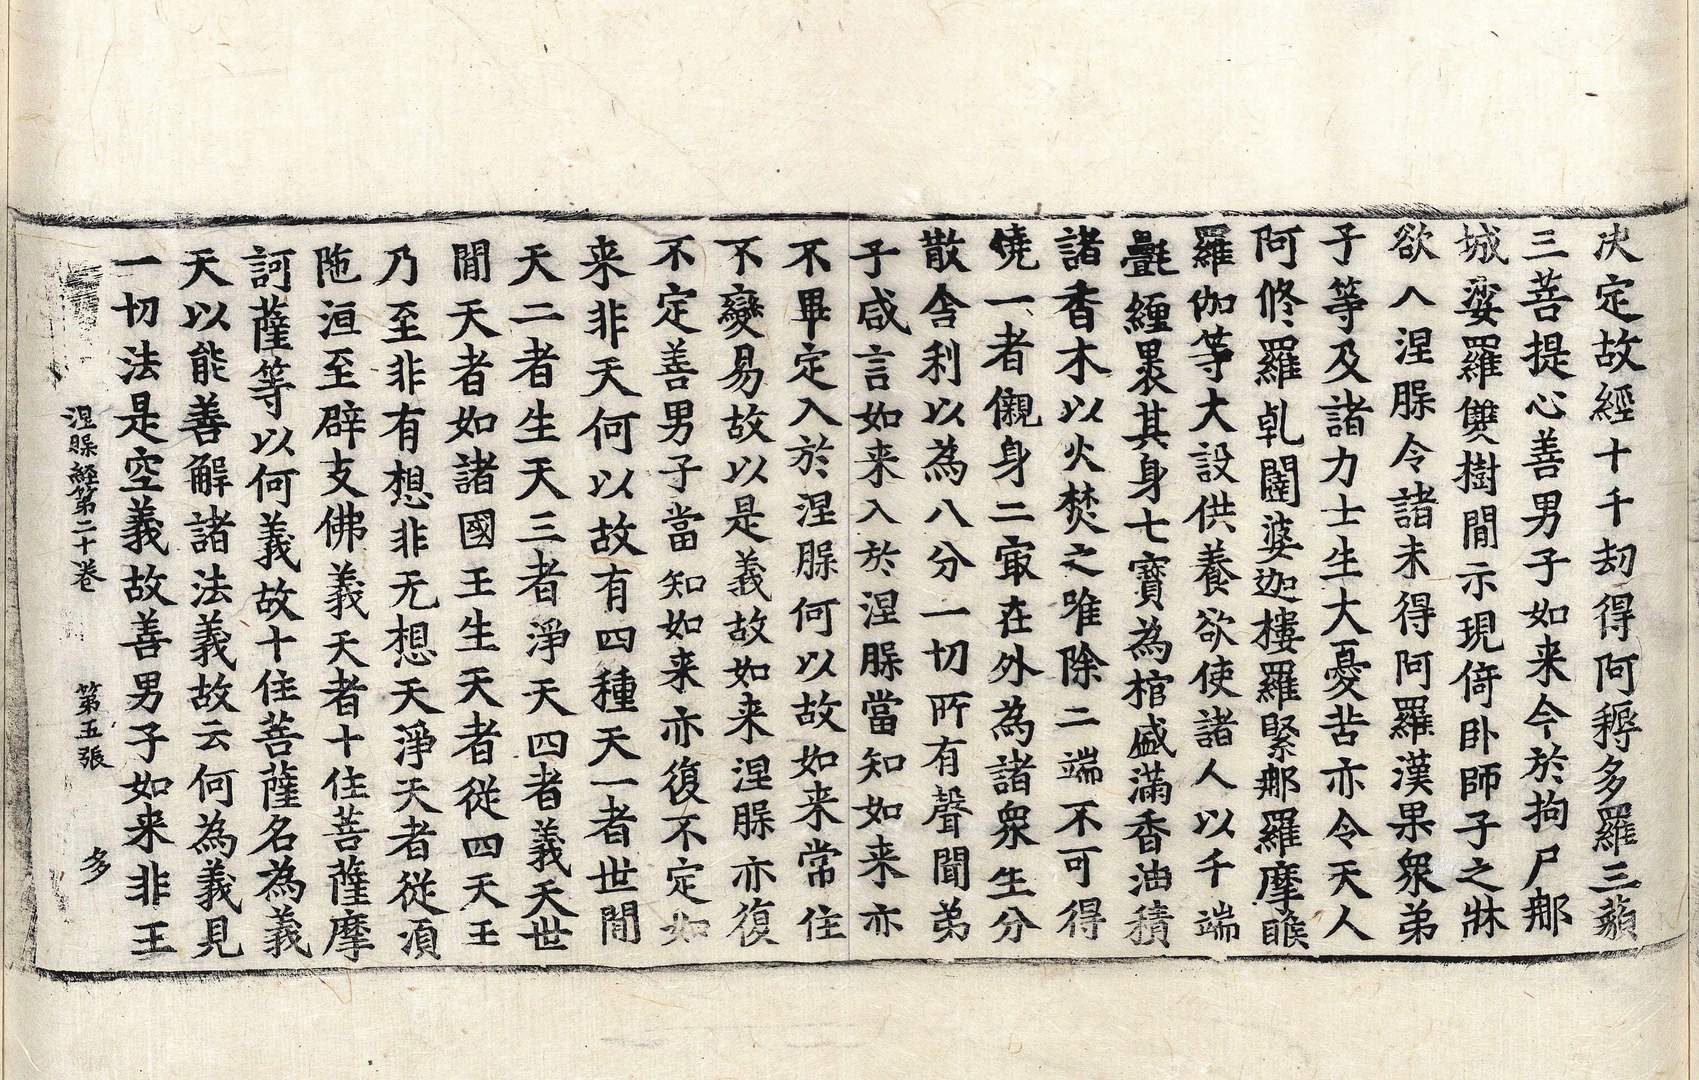 决定故經十千刧得阿耨多羅三藐
三菩提心善男子如来今於拘尸那
城娑羅雙樹間示現倚卧師子之牀
欲入涅槃令諸未得阿羅漢果衆弟
子等及諸力士生大憂苦亦令天人
阿修羅乹闥婆迦樓羅緊那羅摩睺
羅伽等大設供養欲使諸人以千端
㲲纏褁其身七寶為棺盛滿香油積
諸香木以火焚之唯除二端不可得
燒一者儭身二冣在外為諸衆生分
散舍利以為八分一切所有聲聞弟
子咸言如来入於涅槃當知如来亦
不畢定入於涅槃何以故如来常住
不變易故以是義故如来涅槃亦復
不定善男子當知如来亦復不定如
来非天何以故有四種天一者世間
天二者生天三者淨天四者義天世
間天者如諸國王生天者從四天王
乃至非有想非无想天淨天者從湏
陁洹至辟支佛義天者十住菩薩摩
訶薩等以何義故十住菩薩名為義
天以能善解諸法義故云何為義見
一切法是空義故善男子如来非王
涅槃經第二十卷 第五張 多